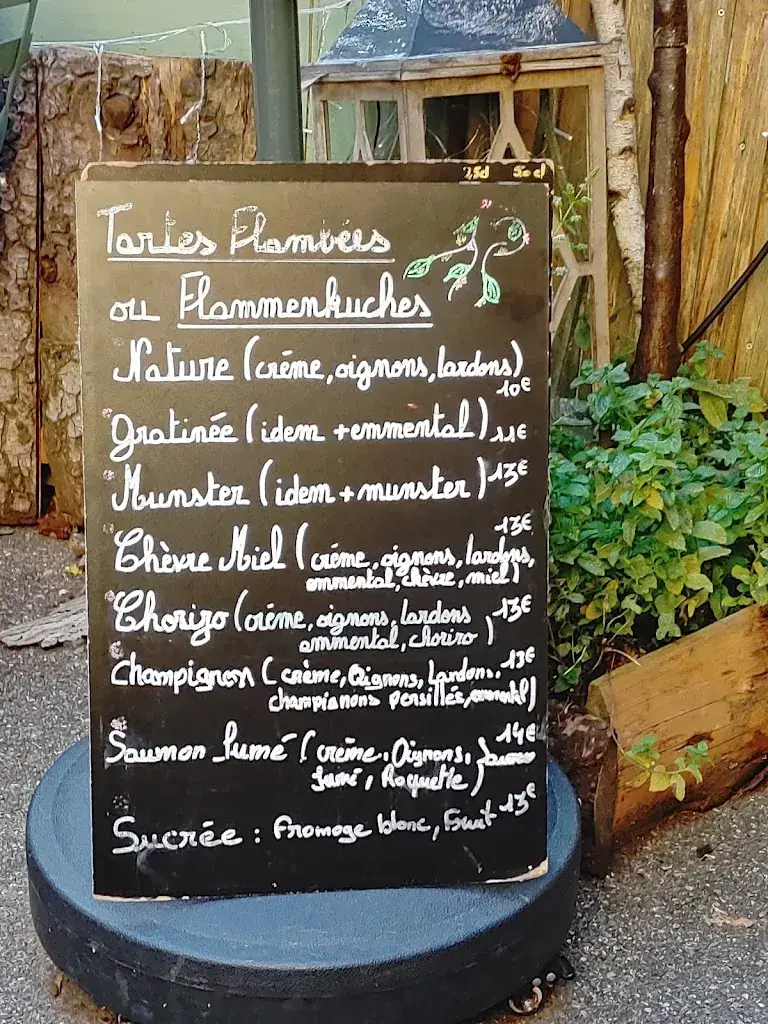 25cl 50cl
Tartes Flambées
ou Flammenkuches
Nature (crème, oignons, lardons)
10€
Gratinée (idem + emmental) 11€
Munster (idem + munster) 13€
13€
Chèvre Miel (crème, oignons, lardons,
emmental, chèvre, miel)
Chorizo (crème, oignons, lardons 13€
emmental, chorizo)
Champignon (crème, Oignons, Lardons, 13€
champignons persillés, emmental)
14€
Saumon fumé (crème, Oignons, Saumon
fumé, Roquette)
Sucrée : fromage blanc, Fruit 13€